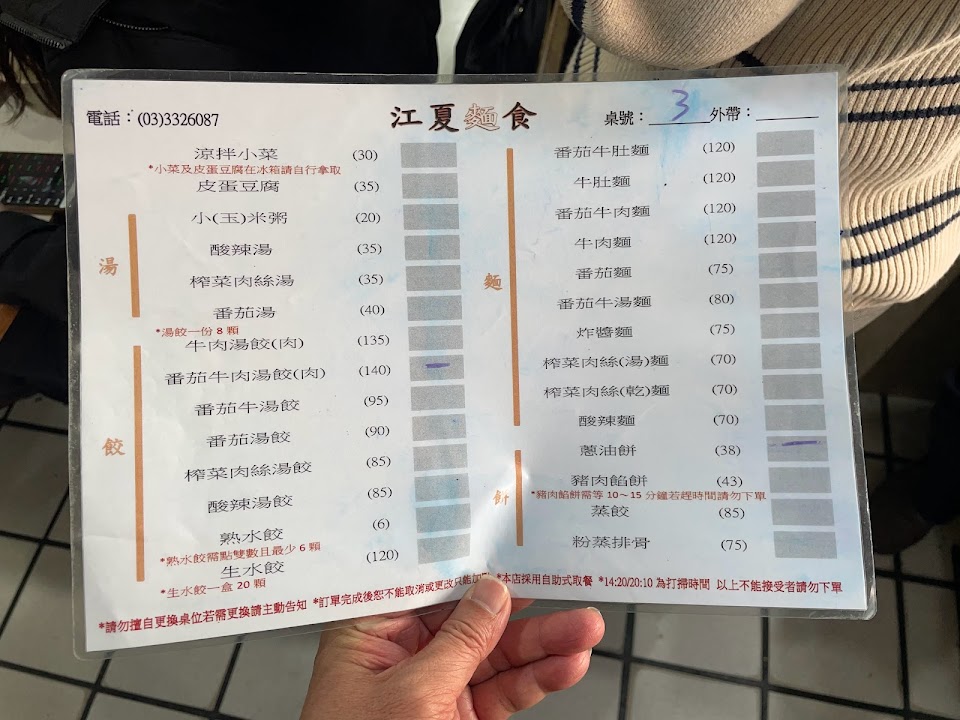 電話：(03)3326087
江夏麵食
桌號：3 外帶：
涼拌小菜 (30)
*小菜及皮蛋豆腐在冰箱請自行拿取
皮蛋豆腐 (35)
湯
小(玉)米粥 (20)
酸辣湯 (35)
榨菜肉絲湯 (35)
番茄湯 (40)
餃
*湯餃一份 8 顆
牛肉湯餃(肉) (135)
番茄牛肉湯餃(肉) (140)
番茄牛湯餃 (95)
番茄湯餃 (90)
榨菜肉絲湯餃 (85)
酸辣湯餃 (85)
熟水餃 (6)
*熟水餃需點雙數且最少 6 顆
生水餃 (120)
*生水餃一盒 20 顆
麵
番茄牛肚麵 (120)
牛肚麵 (120)
番茄牛肉麵 (120)
牛肉麵 (120)
番茄麵 (75)
番茄牛湯麵 (80)
炸醬麵 (75)
榨菜肉絲(湯)麵 (70)
榨菜肉絲(乾)麵 (70)
酸辣麵 (70)
餅
蔥油餅 (38)
豬肉餡餅 (43)
*豬肉餡餅需等 10～15 分鐘若趕時間請勿下單
蒸餃 (85)
粉蒸排骨 (75)
*請勿擅自更換桌位若需更換請主動告知 *訂單完成後恕不能取消或更改只能加 *本店採用自助式取餐 *14:20/20:10 為打掃時間 以上不能接受者請勿下單